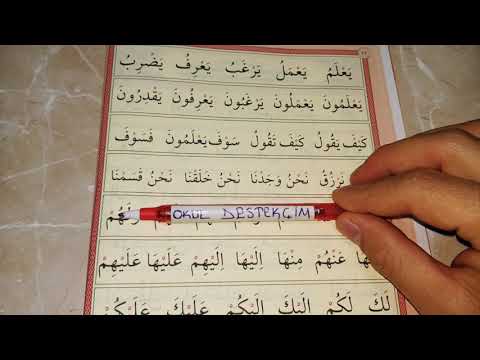 يَعْلَمُ يَعْمَلُ يَرْغَبُ يَعْرِفُ يَضْرِبُ
يَعْلَمُونَ يَعْمَلُونَ يَرْغَبُونَ يَعْرِفُونَ يَقْدِرُونَ
كَيْفَ يَقُولُ كَيْفَ تَقُولُ سَوْفَ يَعْلَمُونَ فَسَوْفَ
نَرْزُقُ نَحْنُ وَجَدْنَا نَحْنُ خَلَقْنَا نَحْنُ قَسَمْنَا
OKUL DESTEKÇİM
عَنْهُمْ مِنْهَا اِلَيْهَا اِلَيْهِمْ عَلَيْهَا عَلَيْهِمْ
لَكَ لَكُمْ اِلَيْكَ اِلَيْكُمْ عَلَيْكَ عَلَيْكُمْ